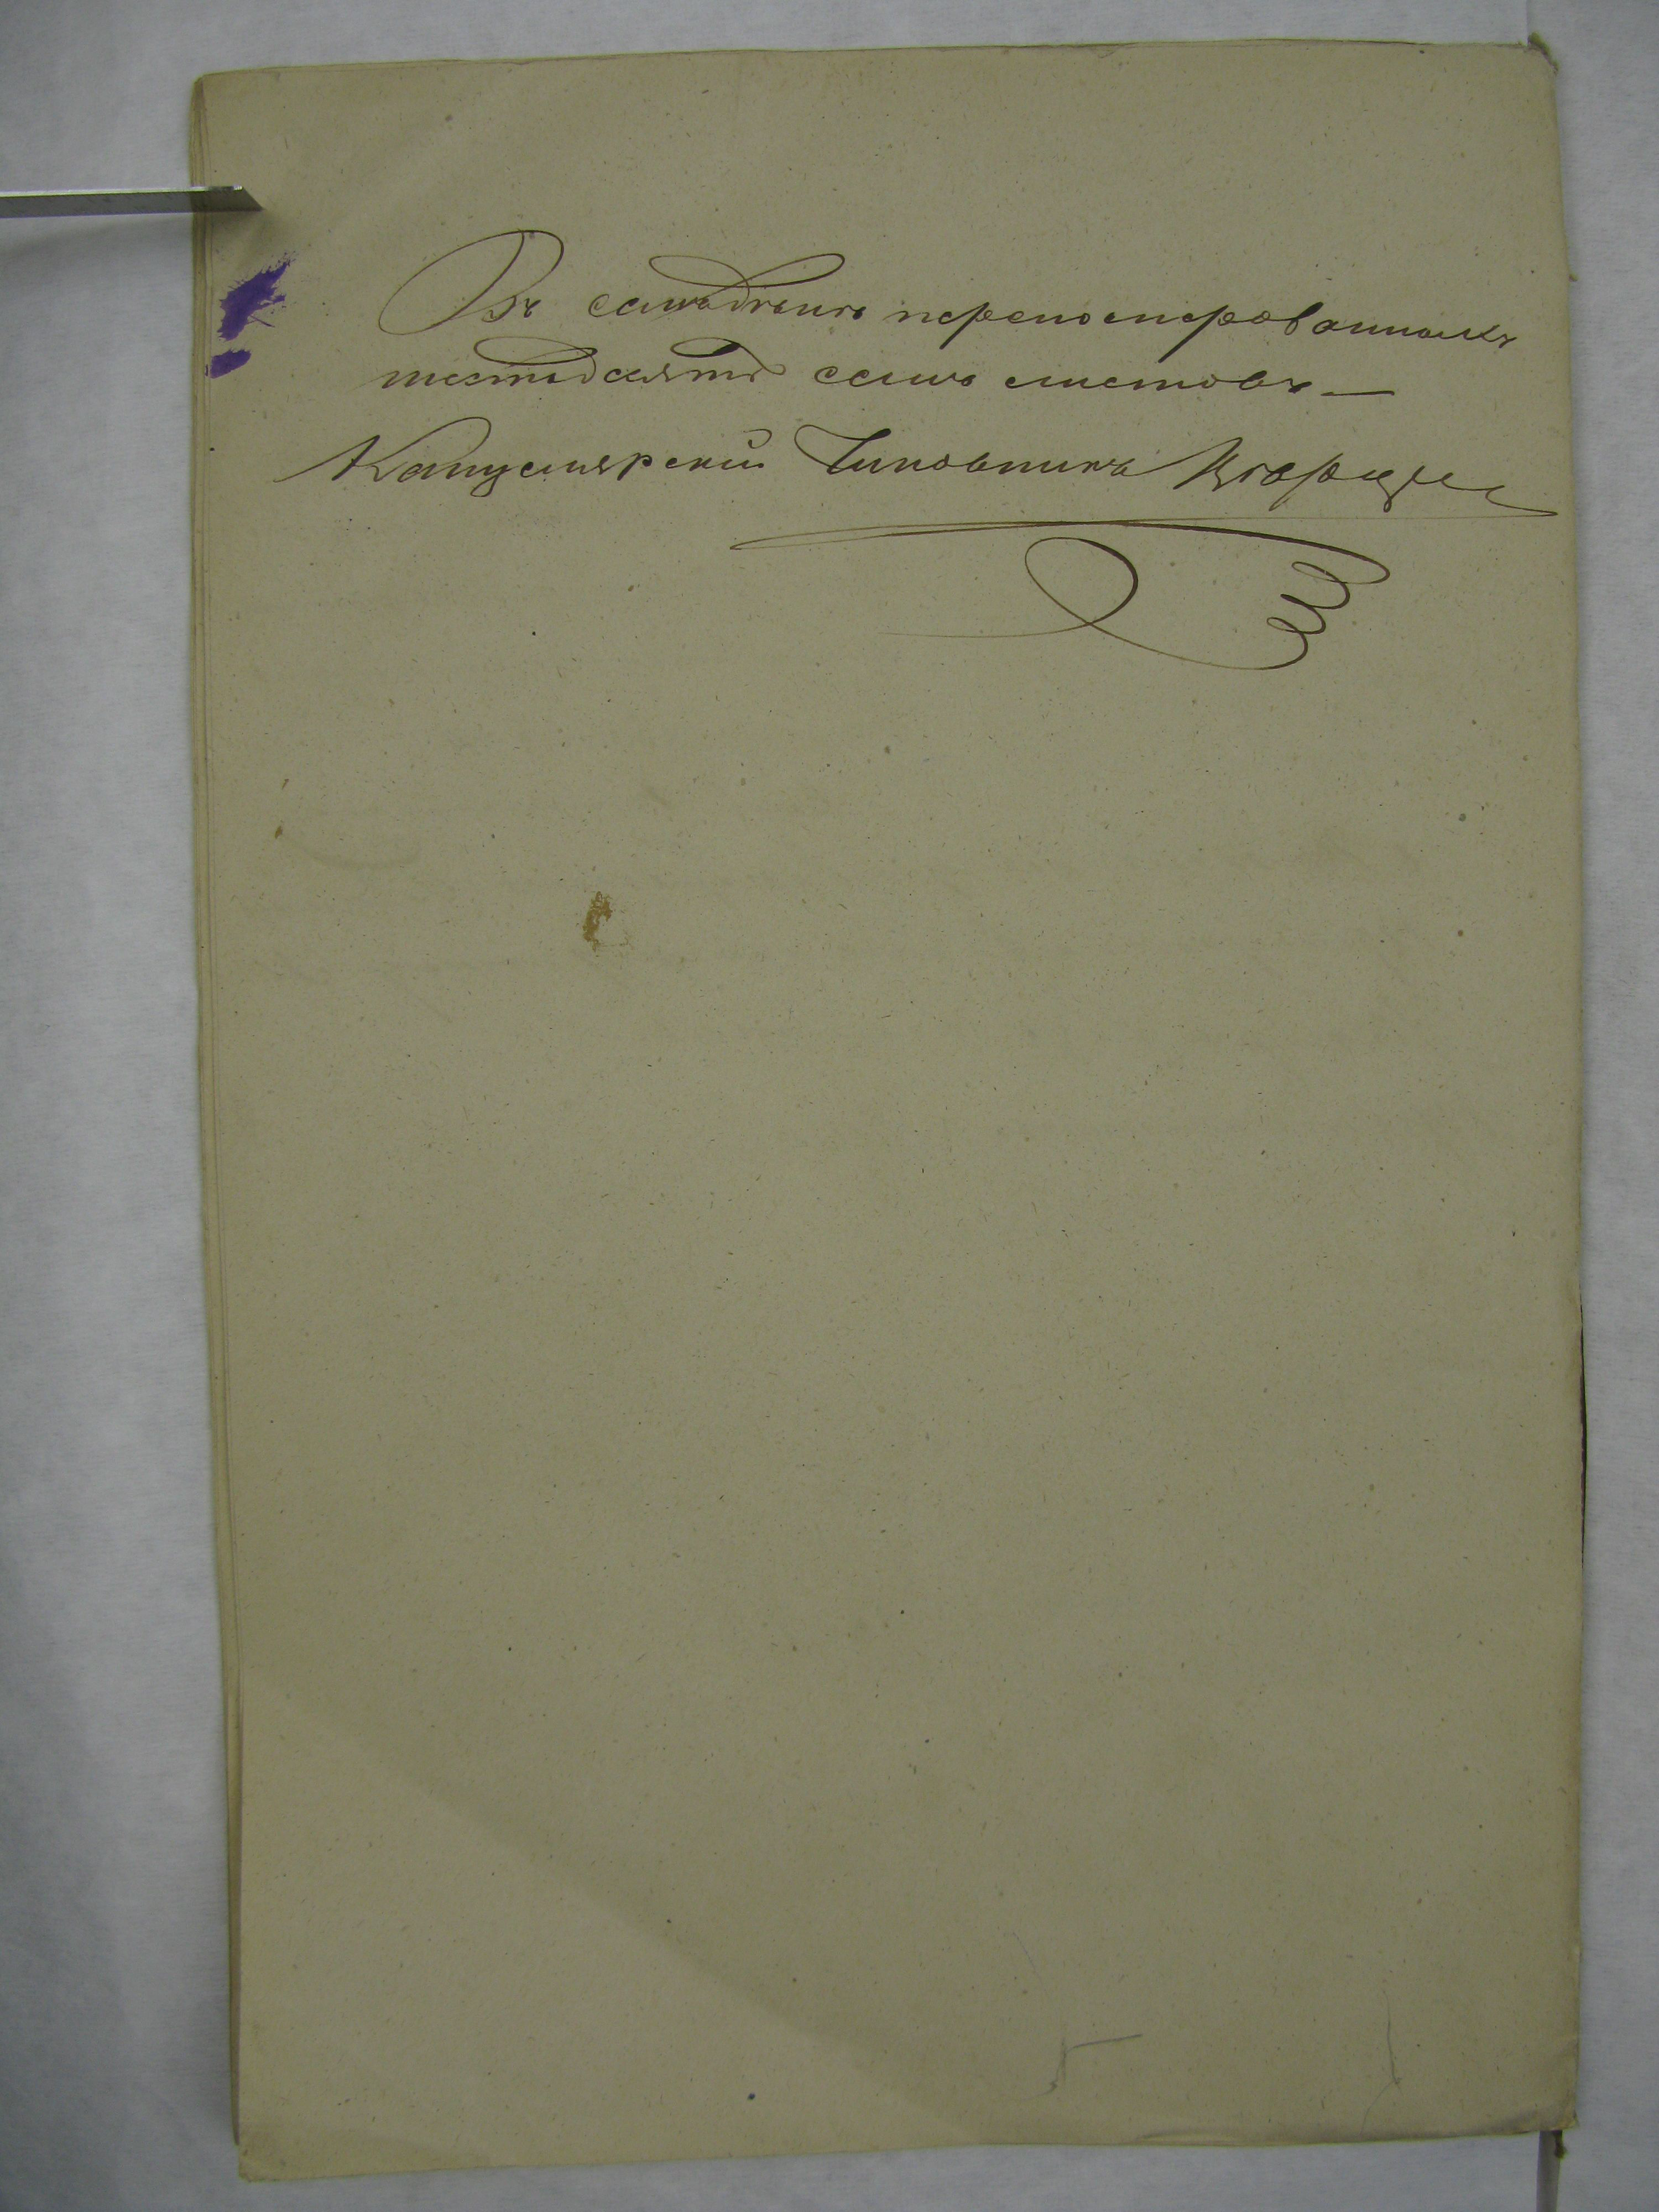 Въ семъ дѣлѣ перенумерованныхъ
шестьдесятъ семь листовъ —
Канцелярскій Чиновникъ